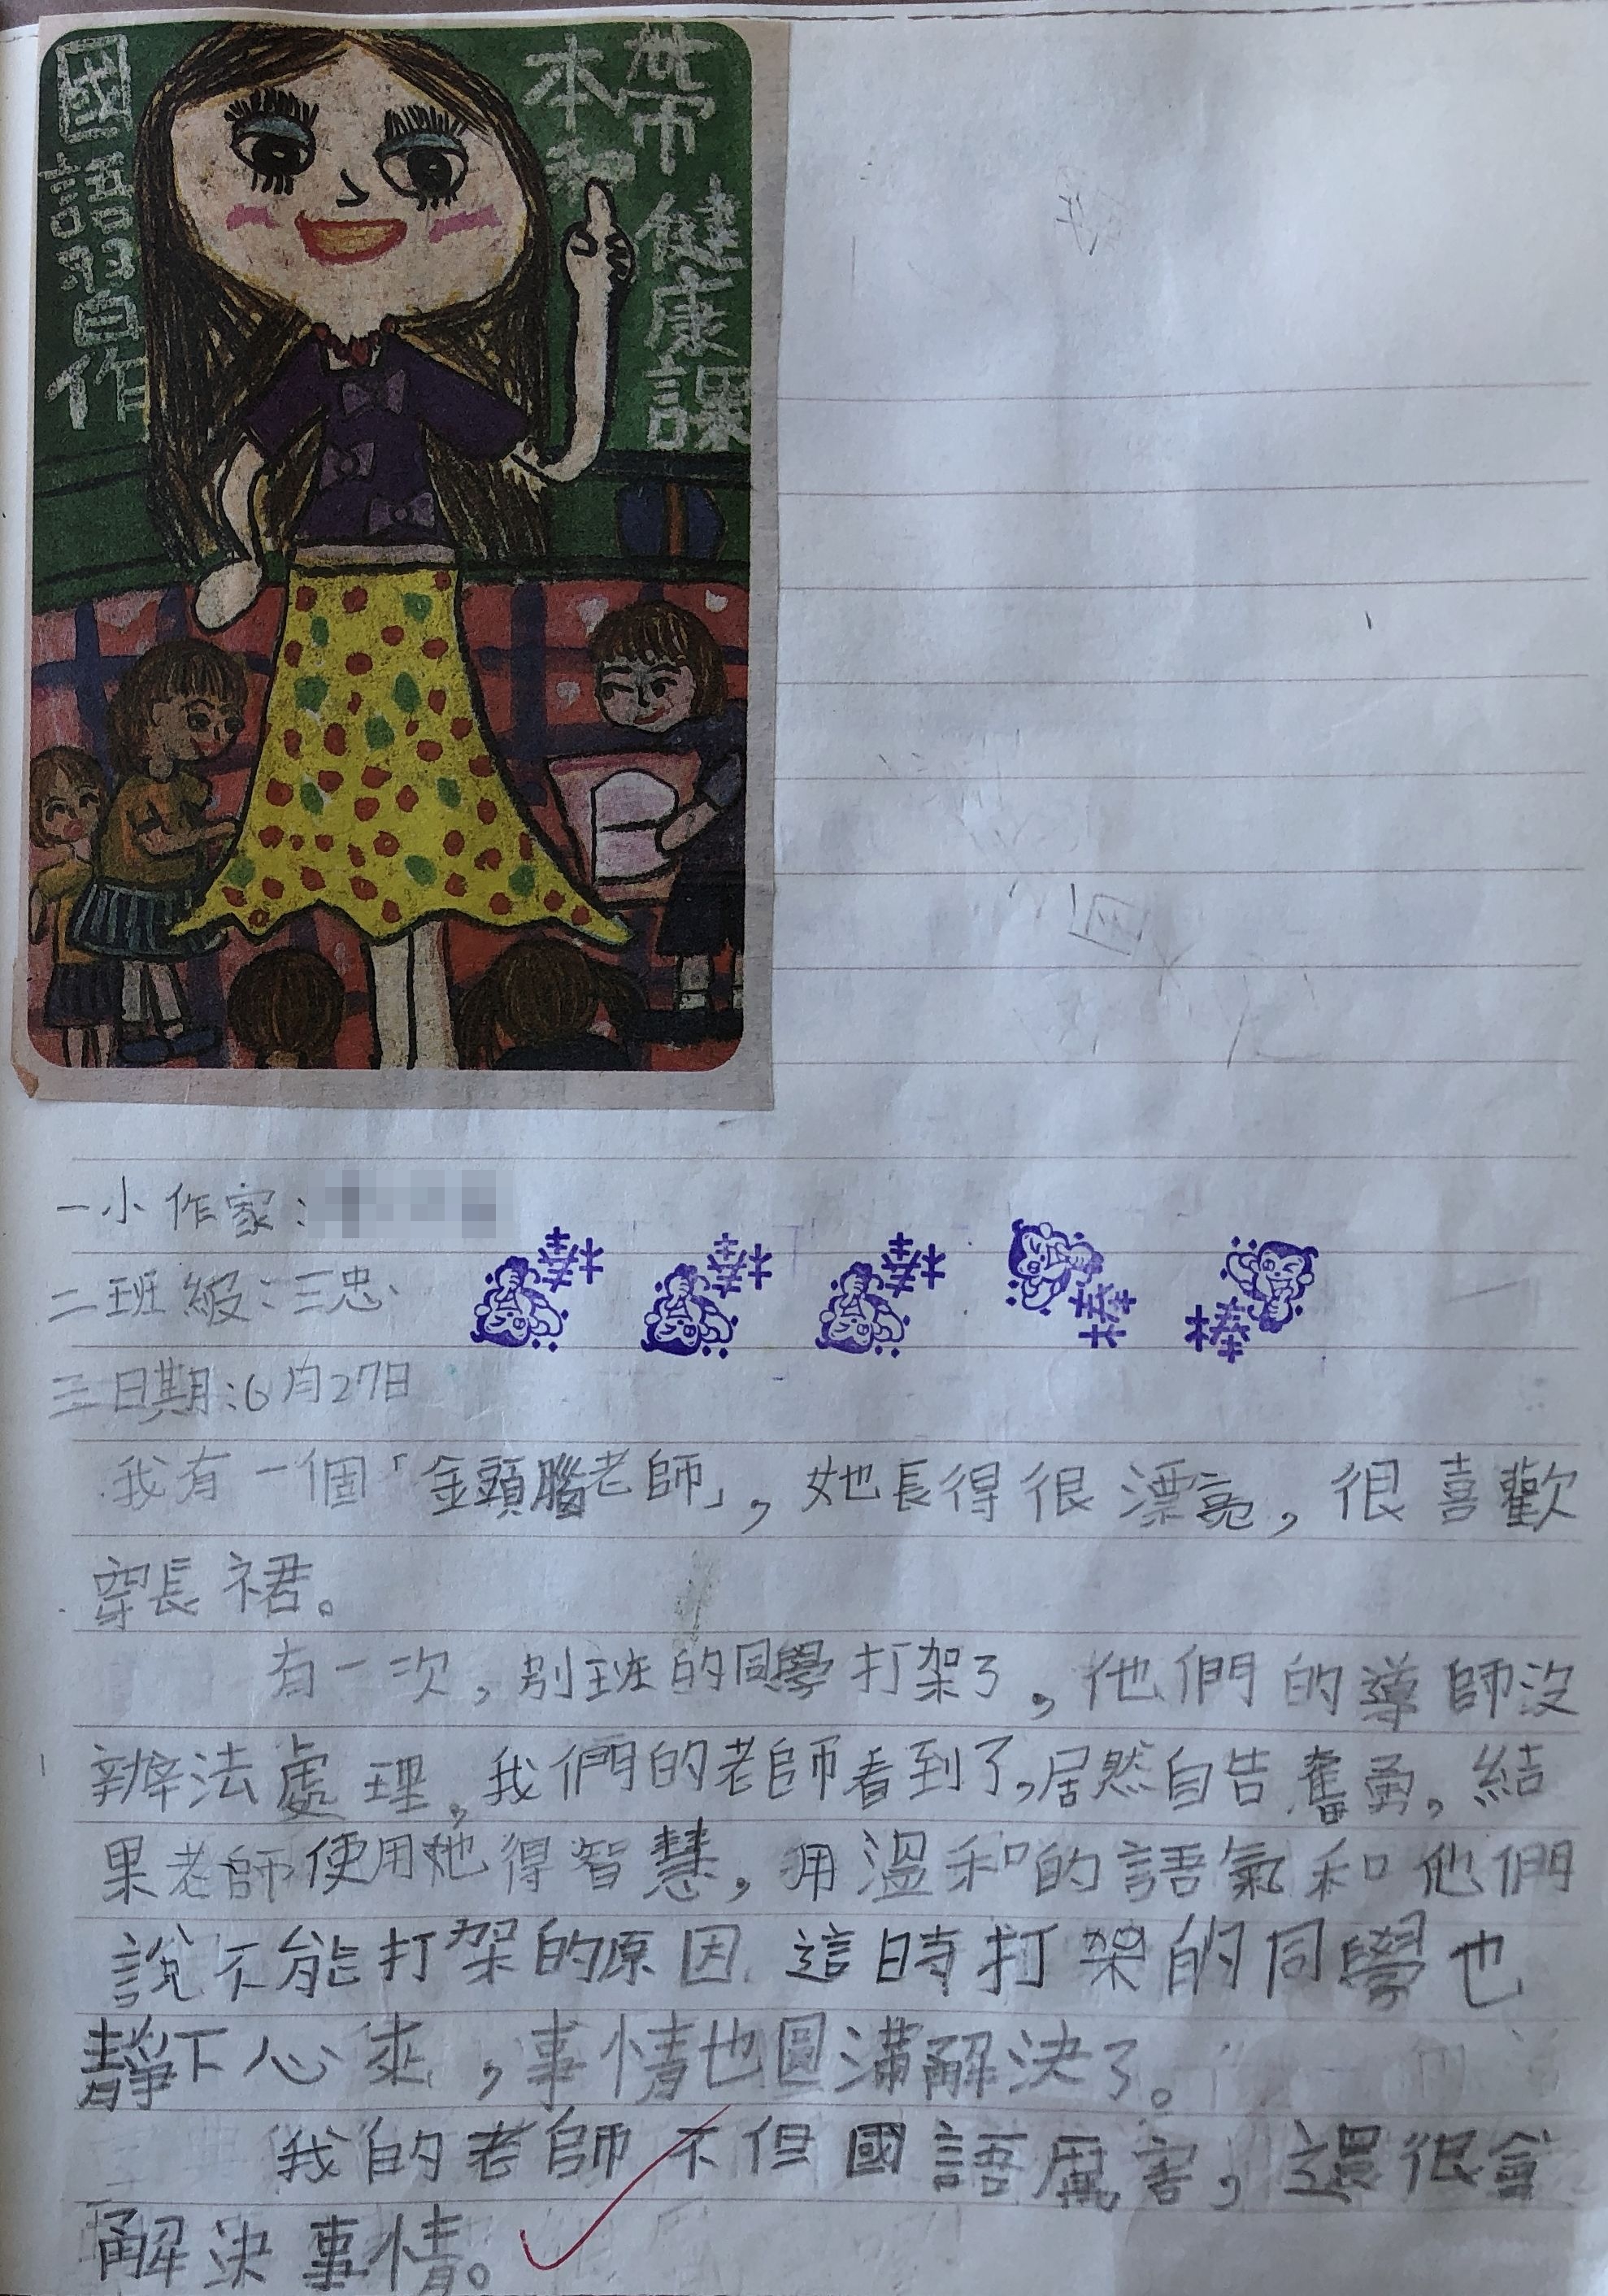 帶健康課
本和
國語習作
一小作家：
二班級：三忠
三日期：6月27日
棒 棒 棒 棒 棒
我有一個「金頭腦老師」，她長得很漂亮，很喜歡
穿長裙。
有一次，別班的同學打架了，他們的導師沒
辦法處理，我們的老師看到了，居然自告奮勇，結
果老師便用她得智慧，用溫和的語氣和他們
說不能打架的原因 這時打架的同學也
靜下心來，事情也圓滿解決了。
我的老師不但國語厲害，還很會
解決事情。